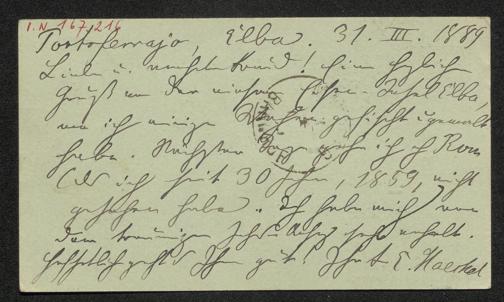 I.N 167,216
Portoferrajo, Elba. 31. III. 1889
Lieber u. verehrter Freund! Einen herzlichen
Gruß von der schönen Insel Elba,
wo ich einige Wochen gefischt u gemalt
habe. Nächsten Tage geh ich n. Rom
(das ich seit 30 Jahren, 1859, nicht
gesehen habe. Ich habe mich von
dem traurigen sehr erholt.
Hoffentlich geht's Ihnen gut! Ihr E. Haeckel